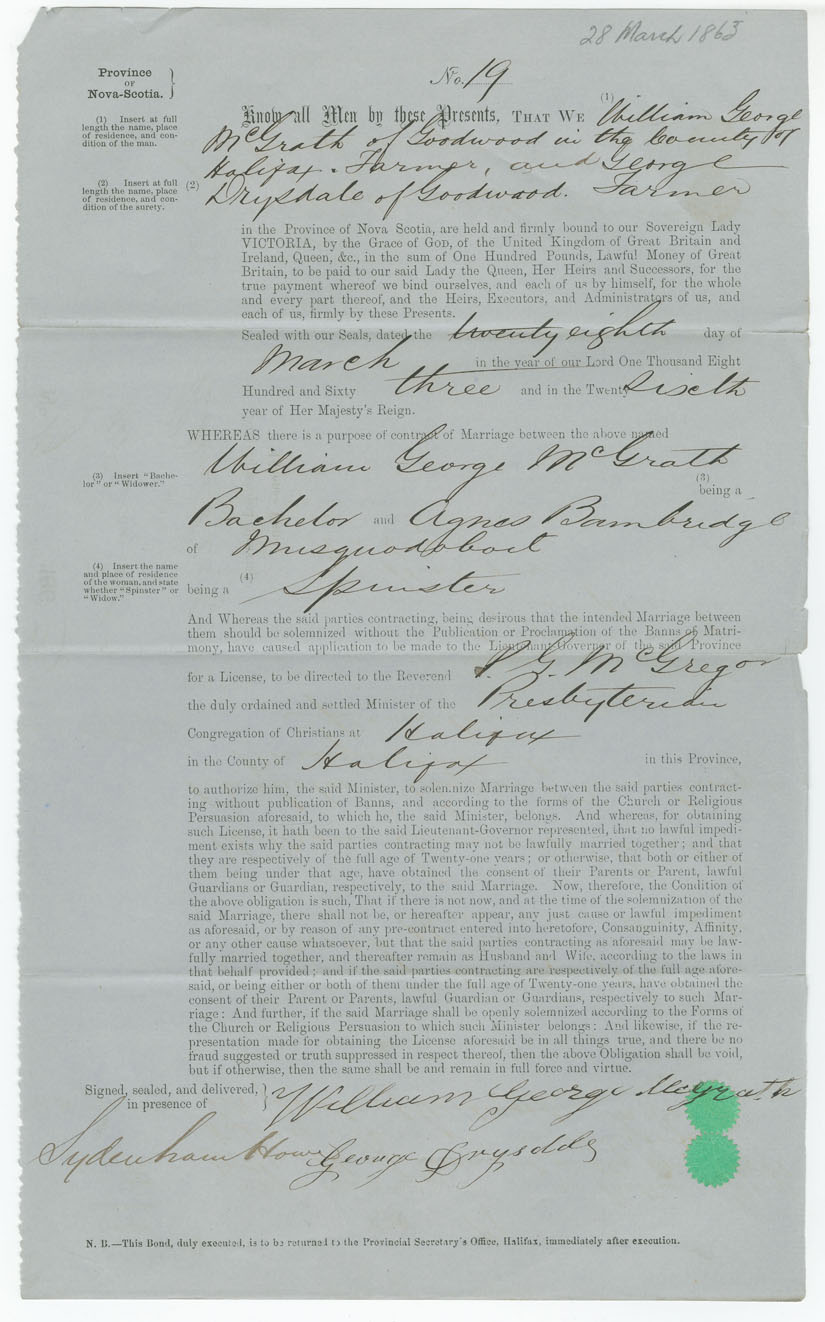 28 March 1863
Province
OF
Nova-Scotia.
No. 19
(1) Insert at full
length the name, place
of residence, and con-
dition of the man.
Know all Men by these Presents, THAT WE (1) William George
McGrath of Goodwood in the County of
Halifax. Farmer, and George
(2) Insert at full
length the name, place
of residence, and con-
dition of the surety.
(2) Drysdale of Goodwood. Farmer
in the Province of Nova Scotia, are held and firmly bound to our Sovereign Lady
VICTORIA, by the Grace of GOD, of the United Kingdom of Great Britain and
Ireland, Queen, &c., in the sum of One Hundred Pounds, Lawful Money of Great
Britain, to be paid to our said Lady the Queen, Her Heirs and Successors, for the
true payment whereof we bind ourselves, and each of us by himself, for the whole
and every part thereof, and the Heirs, Executors, and Administrators of us, and
each of us, firmly by these Presents.
Sealed with our Seals, dated the twenty eighth day of
March in the year of our Lord One Thousand Eight
Hundred and Sixty three and in the Twenty Sixth
year of Her Majesty's Reign.
WHEREAS there is a purpose of contract of Marriage between the above named
William George McGrath
(3) Insert "Bache-
lor" or "Widower."
(3)
being a
Bachelor and Agnes Bambridge
of Musquodoboit
(4) Insert the name
and place of residence
of the woman, and state
whether "Spinster" or
"Widow."
(4)
being a Spinster
And Whereas the said parties contracting, being desirous that the intended Marriage between
them should be solemnized without the Publication or Proclamation of the Banns of Matri-
mony, have caused application to be made to the Lieutenant-Governor of the said Province
for a License, to be directed to the Reverend P. G. McGregor
the duly ordained and settled Minister of the Presbyterian
Congregation of Christians at Halifax
in the County of Halifax in this Province,
to authorize him, the said Minister, to solemnize Marriage between the said parties contract-
ing without publication of Banns, and according to the forms of the Church or Religious
Persuasion aforesaid, to which he, the said Minister, belongs. And whereas, for obtaining
such License, it hath been to the said Lieutenant-Governor represented, that no lawful impedi-
ment exists why the said parties contracting may not be lawfully married together; and that
they are respectively of the full age of Twenty-one years; or otherwise, that both or either of
them being under that age, have obtained the consent of their Parents or Parent, lawful
Guardians or Guardian, respectively, to the said Marriage. Now, therefore, the Condition of
the above obligation is such, That if there is not now, and at the time of the solemnization of the
said Marriage, there shall not be, or hereafter appear, any just cause or lawful impediment
as aforesaid, or by reason of any pre-contract entered into heretofore, Consanguinity, Affinity,
or any other cause whatsoever, but that the said parties contracting as aforesaid may be law-
fully married together, and thereafter remain as Husband and Wife, according to the laws in
that behalf provided; and if the said parties contracting are respectively of the full age afore-
said, or being either or both of them under the full age of Twenty-one years, have obtained the
consent of their Parent or Parents, lawful Guardian or Guardians, respectively to such Mar-
riage: And further, if the said Marriage shall be openly solemnized according to the Forms of
the Church or Religious Persuasion to which such Minister belongs: And likewise, if the re-
presentation made for obtaining the License aforesaid be in all things true, and there be no
fraud suggested or truth suppressed in respect thereof, then the above Obligation shall be void,
but if otherwise, then the same shall be and remain in full force and virtue.
Signed, sealed, and delivered,
in presence of
William George Mcgrath
Sydenham Howe George Drysdale
N. B.—This Bond, duly executed, is to be returned to the Provincial Secretary's Office, Halifax, immediately after execution.